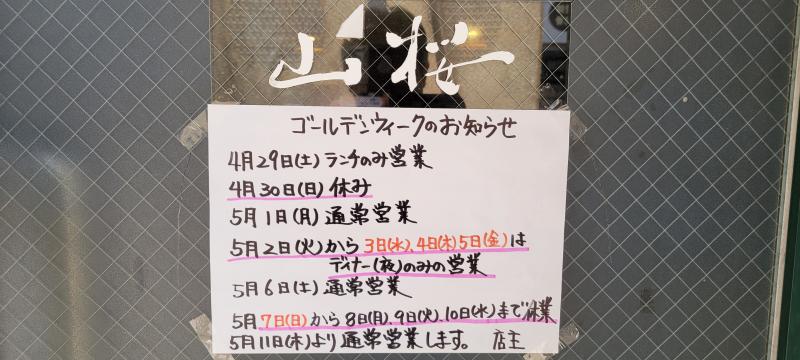 山桜
ゴールデンウィークのお知らせ
4月29日(土)ランチのみ営業
4月30日(日)休み
5月1日(月)通常営業
5月2日(火)から3日(水)、4日(木)5日(金)は
ディナー(夜)のみの営業
5月6日(土)通常営業
5月7日(日)から8日(月)、9日(火)、10日(水)まで休業
5月11日(木)より通常営業します。 店主